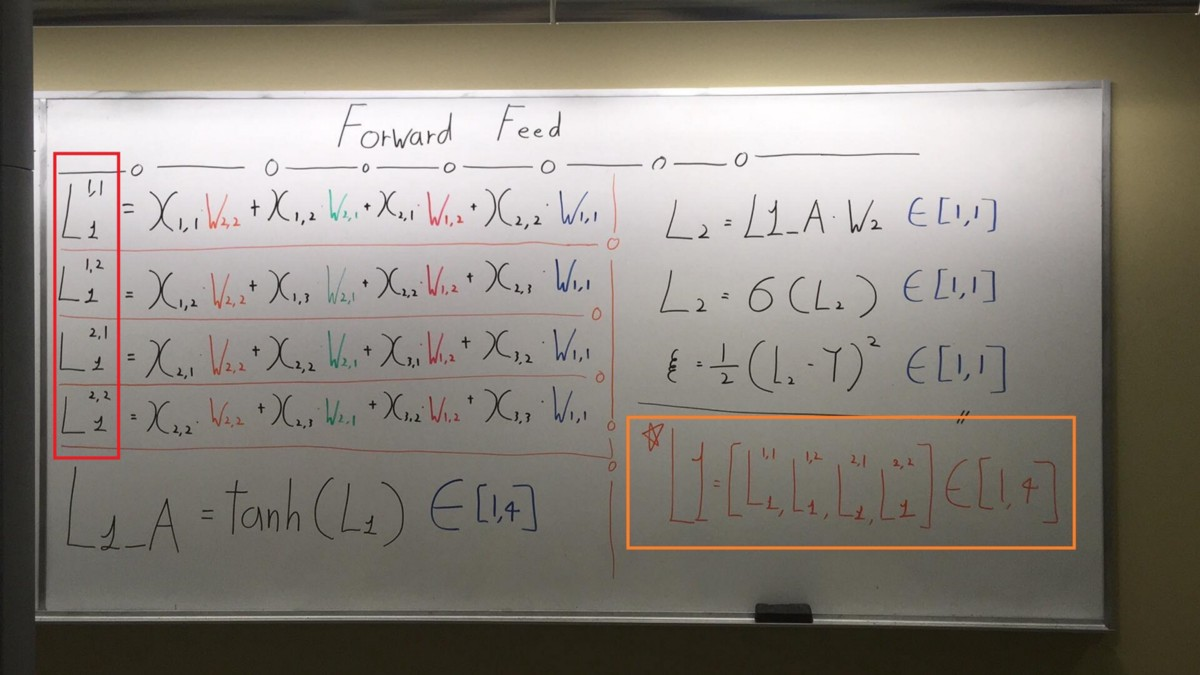 Forward Feed
L₁^{1,1} = X₁,₁ · W₂,₂ + X₁,₂ · W₂,₁ + X₂,₁ · W₁,₂ + X₂,₂ · W₁,₁
L₁^{1,2} = X₁,₂ · W₂,₂ + X₁,₃ · W₂,₁ + X₂,₂ · W₁,₂ + X₂,₃ · W₁,₁
L₁^{2,1} = X₂,₁ · W₂,₂ + X₂,₂ · W₂,₁ + X₃,₁ · W₁,₂ + X₃,₂ · W₁,₁
L₁^{2,2} = X₂,₂ · W₂,₂ + X₂,₃ · W₂,₁ + X₃,₂ · W₁,₂ + X₃,₃ · W₁,₁
L₁_A = tanh(L₁) ∈ [1,4]
L₂ = L1_A · W₂ ∈ [1,1]
L₂ = σ(L₂) ∈ [1,1]
ξ = 1/2 (L₂ - Y)² ∈ [1,1]
☆ L1 = [L₁^{1,1}, L₁^{1,2}, L₁^{2,1}, L₁^{2,2}] ∈ [1,4]